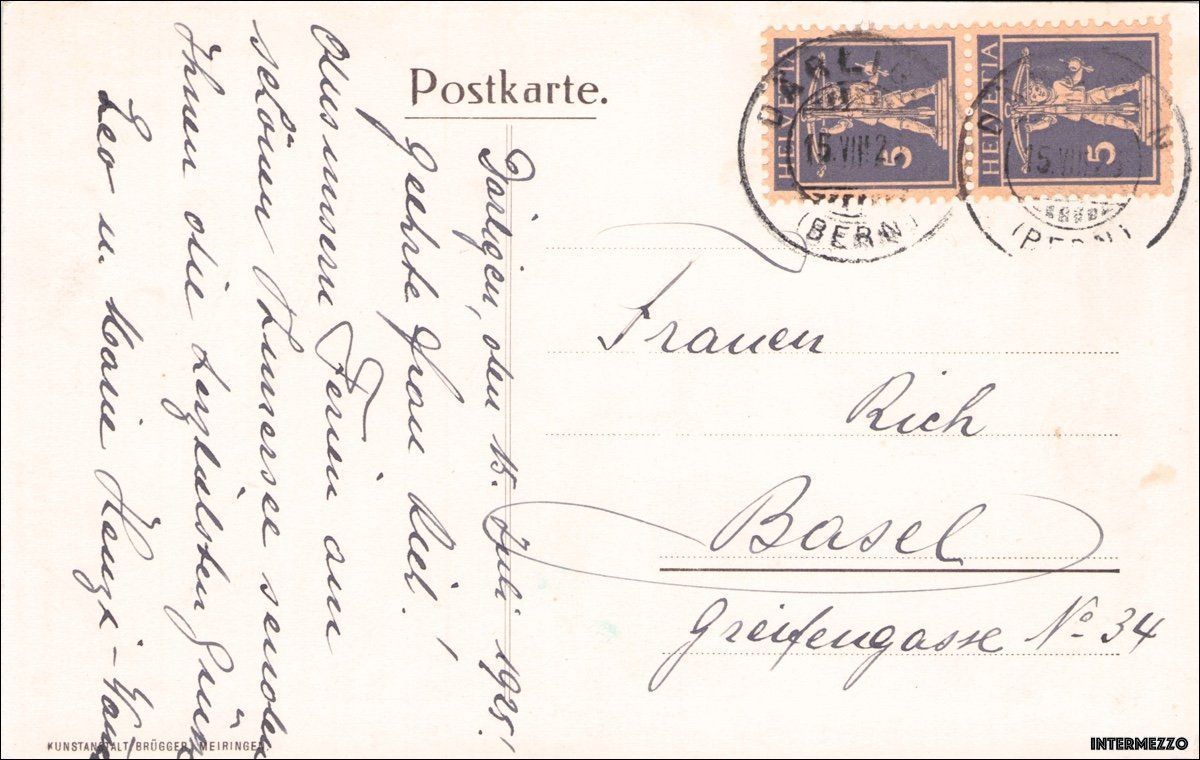 Postkarte.
HELVETIA
5
HELVETIA
5
DÄRLIG
15.VII.2
(BERN)
N
(BERN)
Frauen
Rich
Basel
Greifengasse No 34
Därligen, den 15. Juli 1925.
Geehrte Frau Rich!
Aus unsern Ferien am
schönen Thunersee senden
Ihnen die herzlichsten Grüsse
Leo u. Marie
KUNSTANSTALT BRÜGGER, MEIRINGEN.
INTERMEZZO